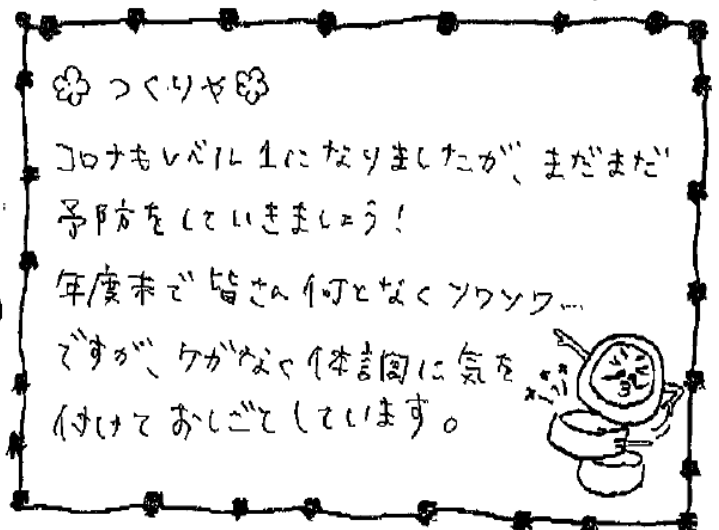 つくりや
コロナもレベル1になりましたが、まだまだ
予防をしていきましょう!
年度末で皆さん何となくソワソワ…
ですが、ケガなく体調に気を
付けておしごとしています。